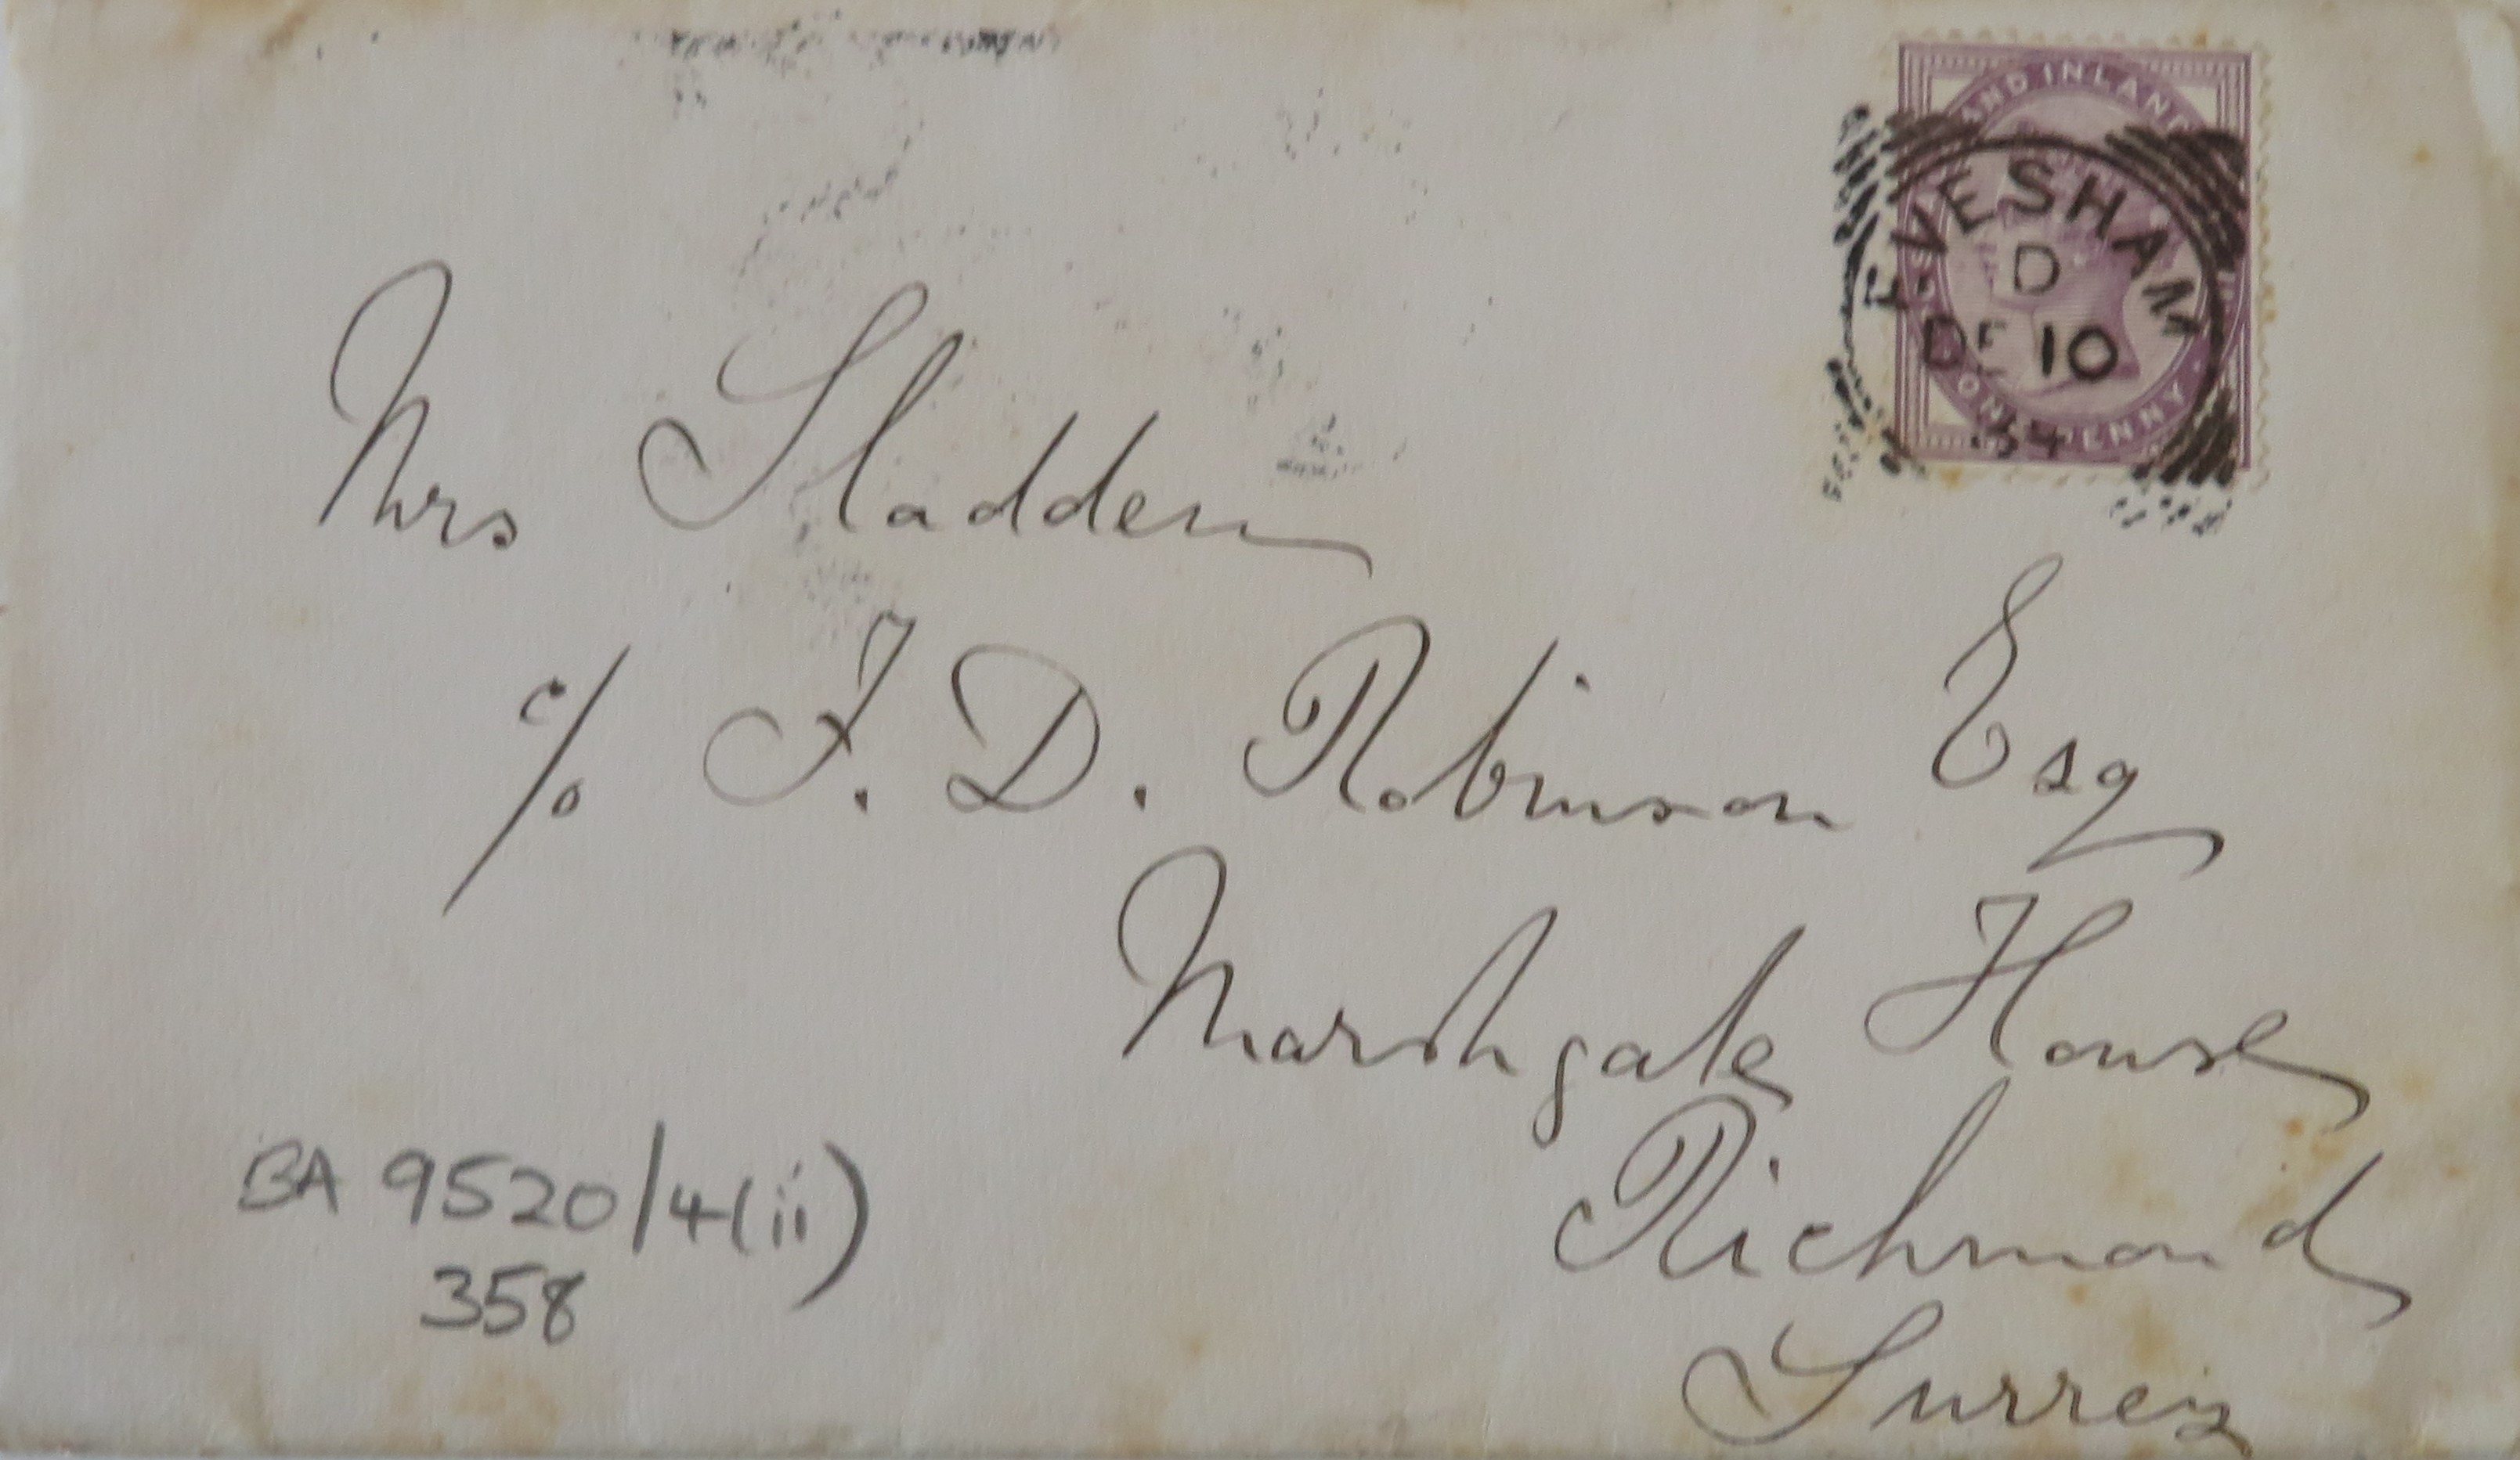 AND INLAND
EVESHAM
D
DE 10
ONE PENNY
Mrs Sladden
c/o J. D. Robinson Esq
Marshgate House
Richmond
Surrey
BA 9520/4(ii)
358